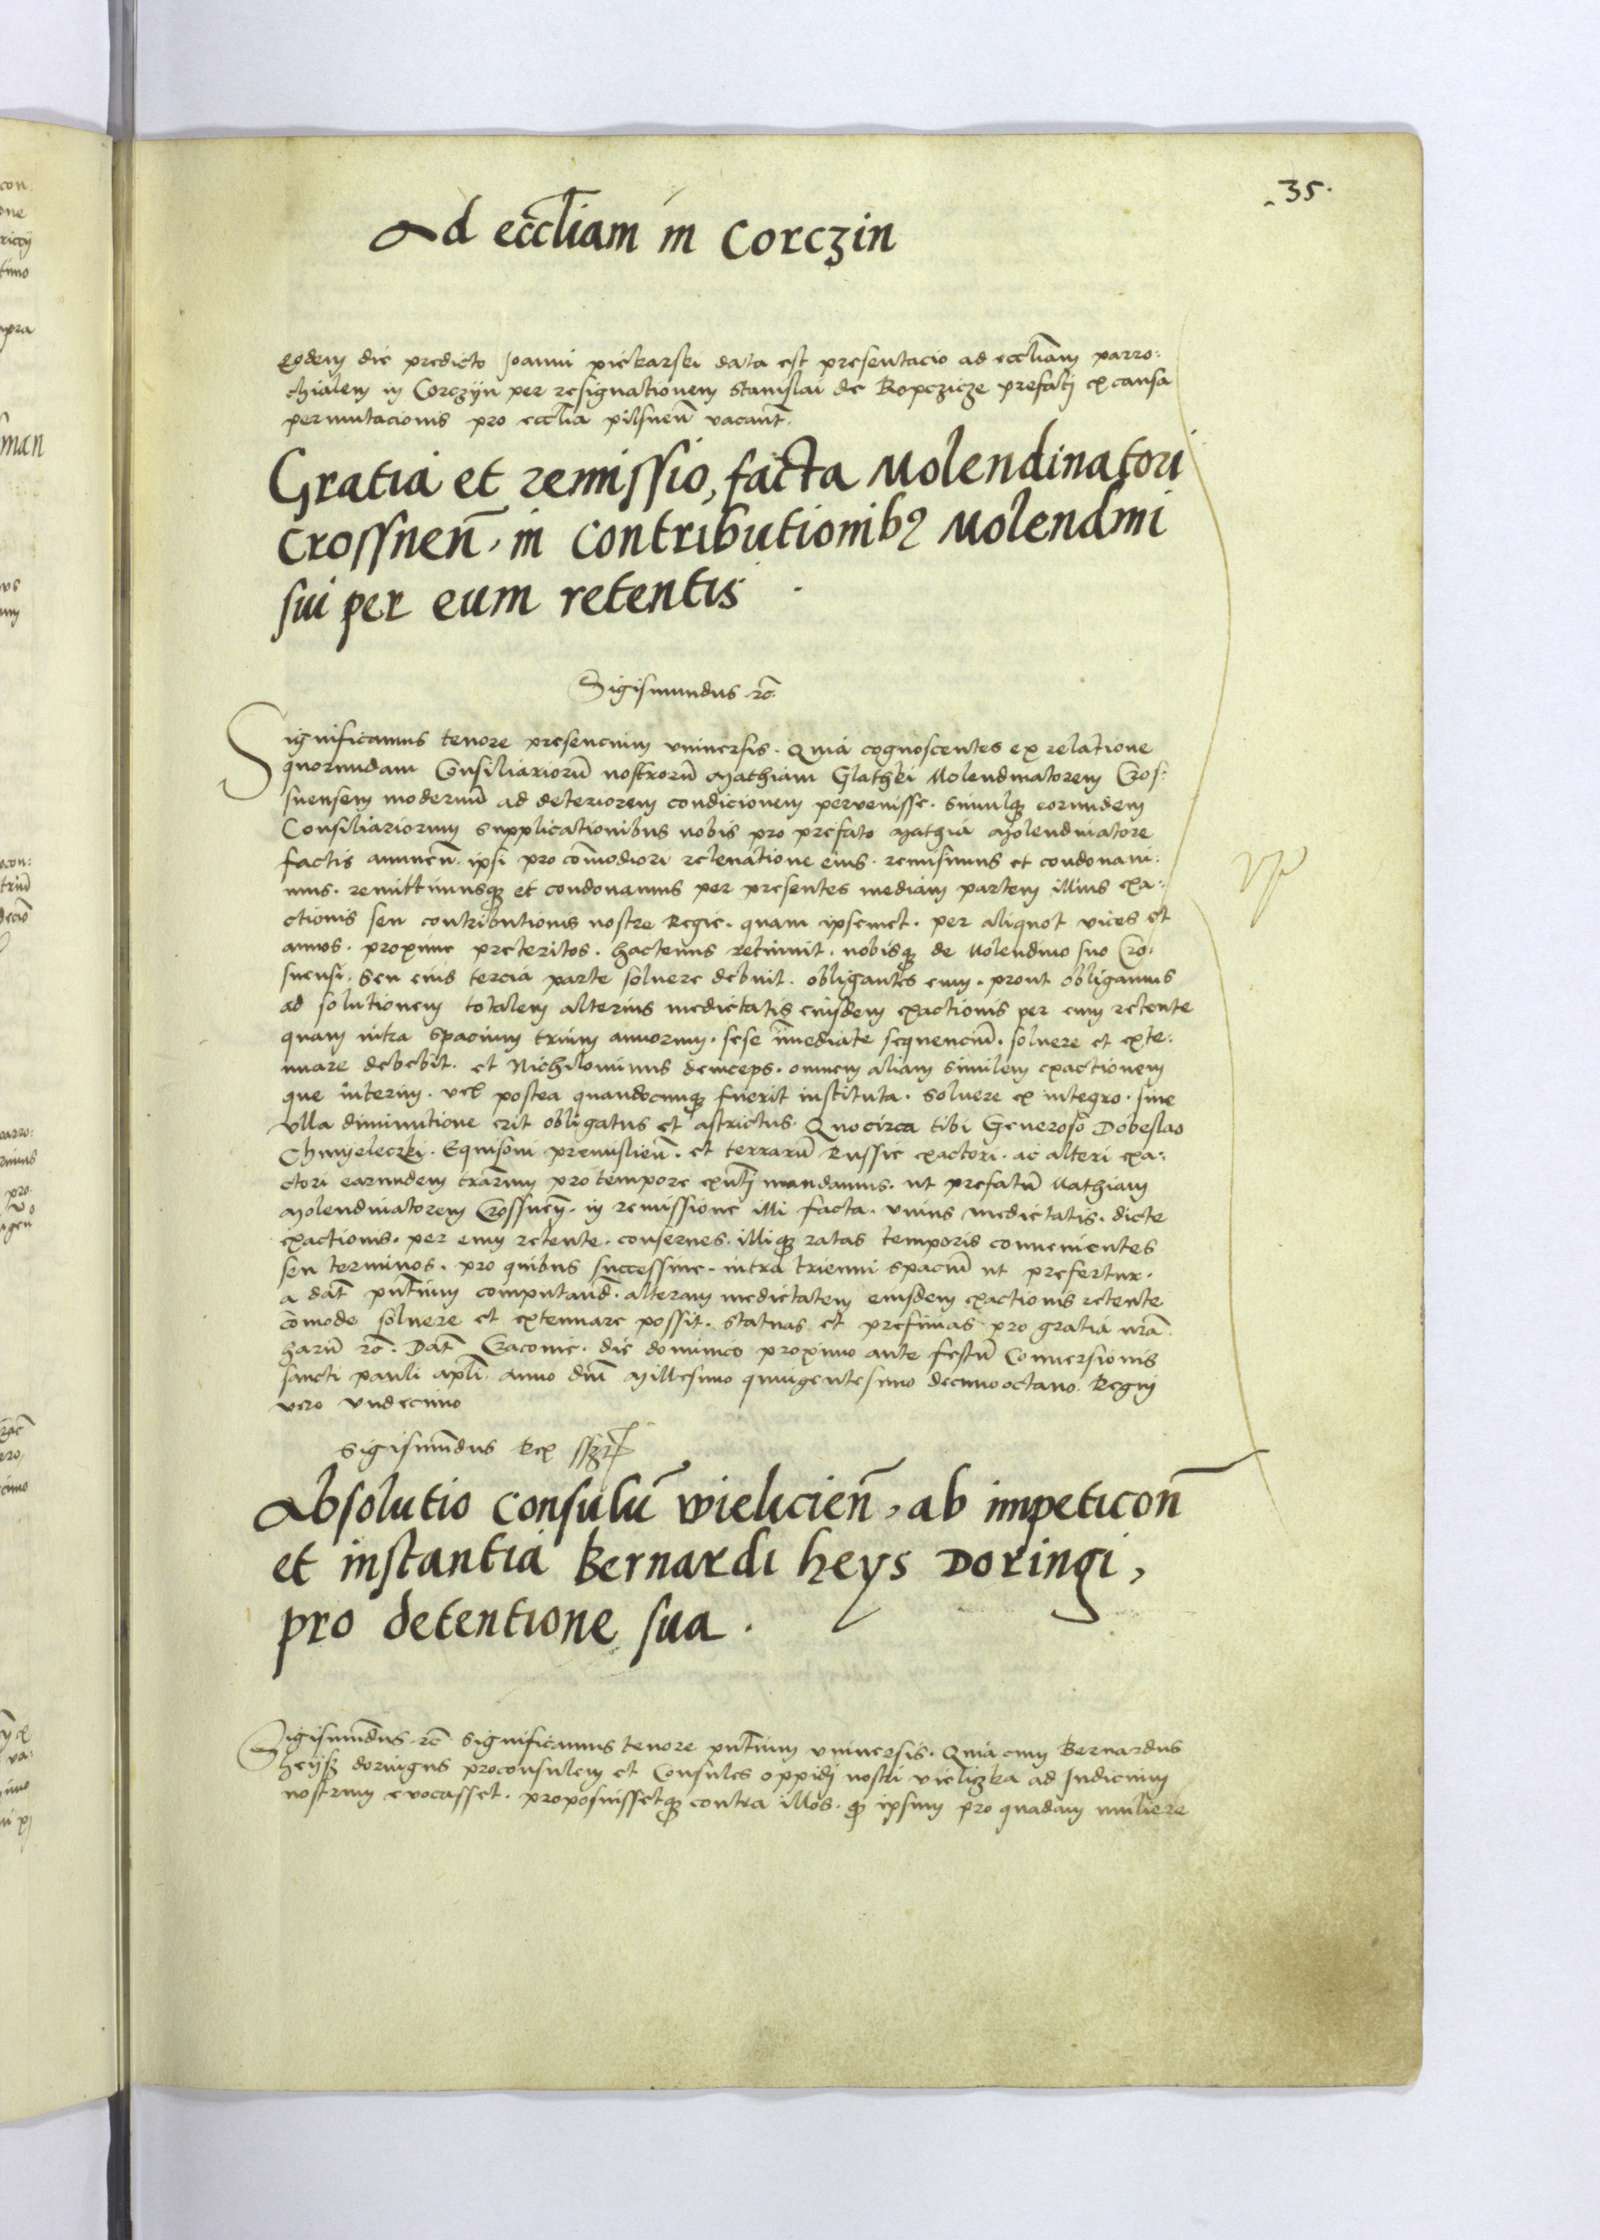 35.
Ad eccl̃iam in Corczin
Eodem die predicto Joanni piekarski data est presentacio ad eccl̃iam parro:
chialem in Corczyn per resignationem Stanislai de Ropczicze prefatj ex causa
permutacionis pro eccl̃ia pilsneñ vacañt.
Gratia et remissio, facta Molendinatori
Crossneñ, in contributionibꝰ Molendini
sui per eum retentis
Sigismundus rc̃.
Significamus tenore presencium vniuersis. Quia cognoscentes ex relatione
quorundam Consiliariorũ nostrorũ Mathiam Glathki Molendinatorem Cros:
snensem modernũ ad deteriorem condicionem pervenisse. simulqꝫ eorundem
Consiliariorum supplicationibus nobis pro prefato Mathia Molendinatore
factis annueñ. ipsi pro com̃odiori releuatione eius. remisimus et condonaui:
mus. remittimusqꝫ et condonamus per presentes mediam partem illius exa:
ctionis seu contributionis nostre Regie. quam ipsemet. per aliquot vices et
annos. proxime preteritos. hactenus retinuit. nobisqꝫ de Molendino suo Cro:
snensi. seu eius tercia parte soluere debuit. obligantes eum. prout obligamus
ad solutionem totalem alterius medietatis eiusdem exactionis per eum retente
quam intra spacium trium annorum. sese im̃ediate sequenciũ. soluere et exte:
nuare debebit. et Nichilominus deinceps. omnem aliam similem exactionem
que interim. vel postea quandocunqꝫ fuerit instituta. soluere ex integro. sine
vlla diminutione erit obligatus et astrictus. Quocirca tibi Generoso Dobeslao
Chmyeleczki. Equisoni premislieñ. et terrarũ Russie exactori. ac alteri exa:
ctori earundem tr̃arum pro tempore exñtj mandamus. ut prefatũ Mathiam
Molendinatorem Crossneñ. in remissione illi facta. vnius medietatis. dicte
exactionis. per eum retente. conserues. illiqꝫ ratas temporis conuenientes
seu terminos. pro quibus successiue. intra trienni spaciũ ut prefertur.
a dat̃ pñtium computand̃. alteram medietatem eiusdem exactionis retente
com̃ode soluere et extenuare possit. statuas et prefinias pro gratia nrã.
harũ rc̃. Dat̃ Cracouie. die dominico proximo ante festũ Conuersionis
sancti pauli apl̃i. anno dñi Millesimo quingentesimo decimooctauo. Regni
vero vndecimo
Sigismũdus Rex sszt
Absolutio Consulũ wielicieñ, ab impeticoñ
et instantia Bernardi heys Doringi,
pro detentione sua.
Sigismũdus rc̃ significamus tenore pñtium vniuersis. Quia cum Bernardus
heyss doringus proconsulem et Consules oppidj nostri vieliczka ad Judicium
nostrum euocasset. proposuissetqꝫ contra illos. qꝫ ipsum pro quadam muliere